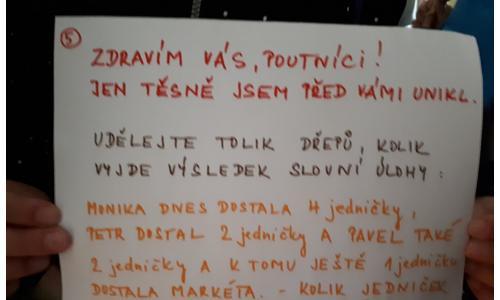 5
ZDRAVÍM VÁS, POUTNÍCI!
JEN TĚSNĚ JSEM PŘED VÁMI UNIKL.
UDĚLEJTE TOLIK DŘEPŮ, KOLIK
VYJDE VÝSLEDEK SLOVNÍ ÚLOHY:
MONIKA DNES DOSTALA 4 jedničky,
PETR DOSTAL 2 jedničky A PAVEL TAKÉ
2 jedničky A K TOMU JEŠTĚ 1 jedničku
DOSTALA MARKÉTA. - KOLIK JEDNIČEK